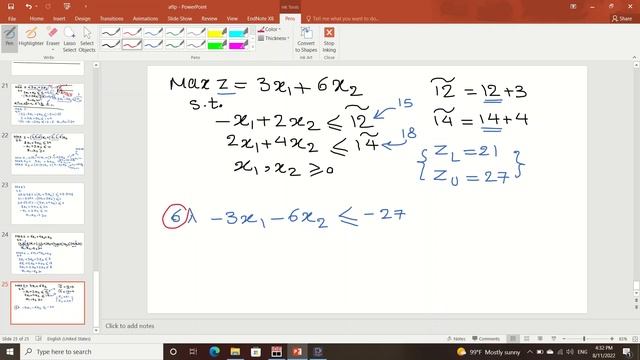 aflp - PowerPoint
Ink Tools
File Home Insert Design Transitions Animations Slide Show Review View EndNote X8 Pens Tell me what you want to do...
Pen Highlighter Eraser Lasso Select Select Objects
Color
Thickness
Convert to Shapes
Stop Inking
Write Pens Ink Art
21
22
23
24
25
Max z = 3x₁ + 6x₂
s.t.
-x₁ + 2x₂ ≤ 1̃2̃ 15
2x₁ + 4x₂ ≤ 1̃4̃ 18
x₁, x₂ ≥ 0
1̃2̃ = 12 + 3
1̃4̃ = 14 + 4
{ Z_L = 21 }
{ Z_U = 27 }
6λ -3x₁ - 6x₂ ≤ -27
Click to add notes
Slide 25 of 25 English (United States) Notes Comments 81%
Type here to search
99°F Mostly sunny ENG 4:32 PM 8/11/2022